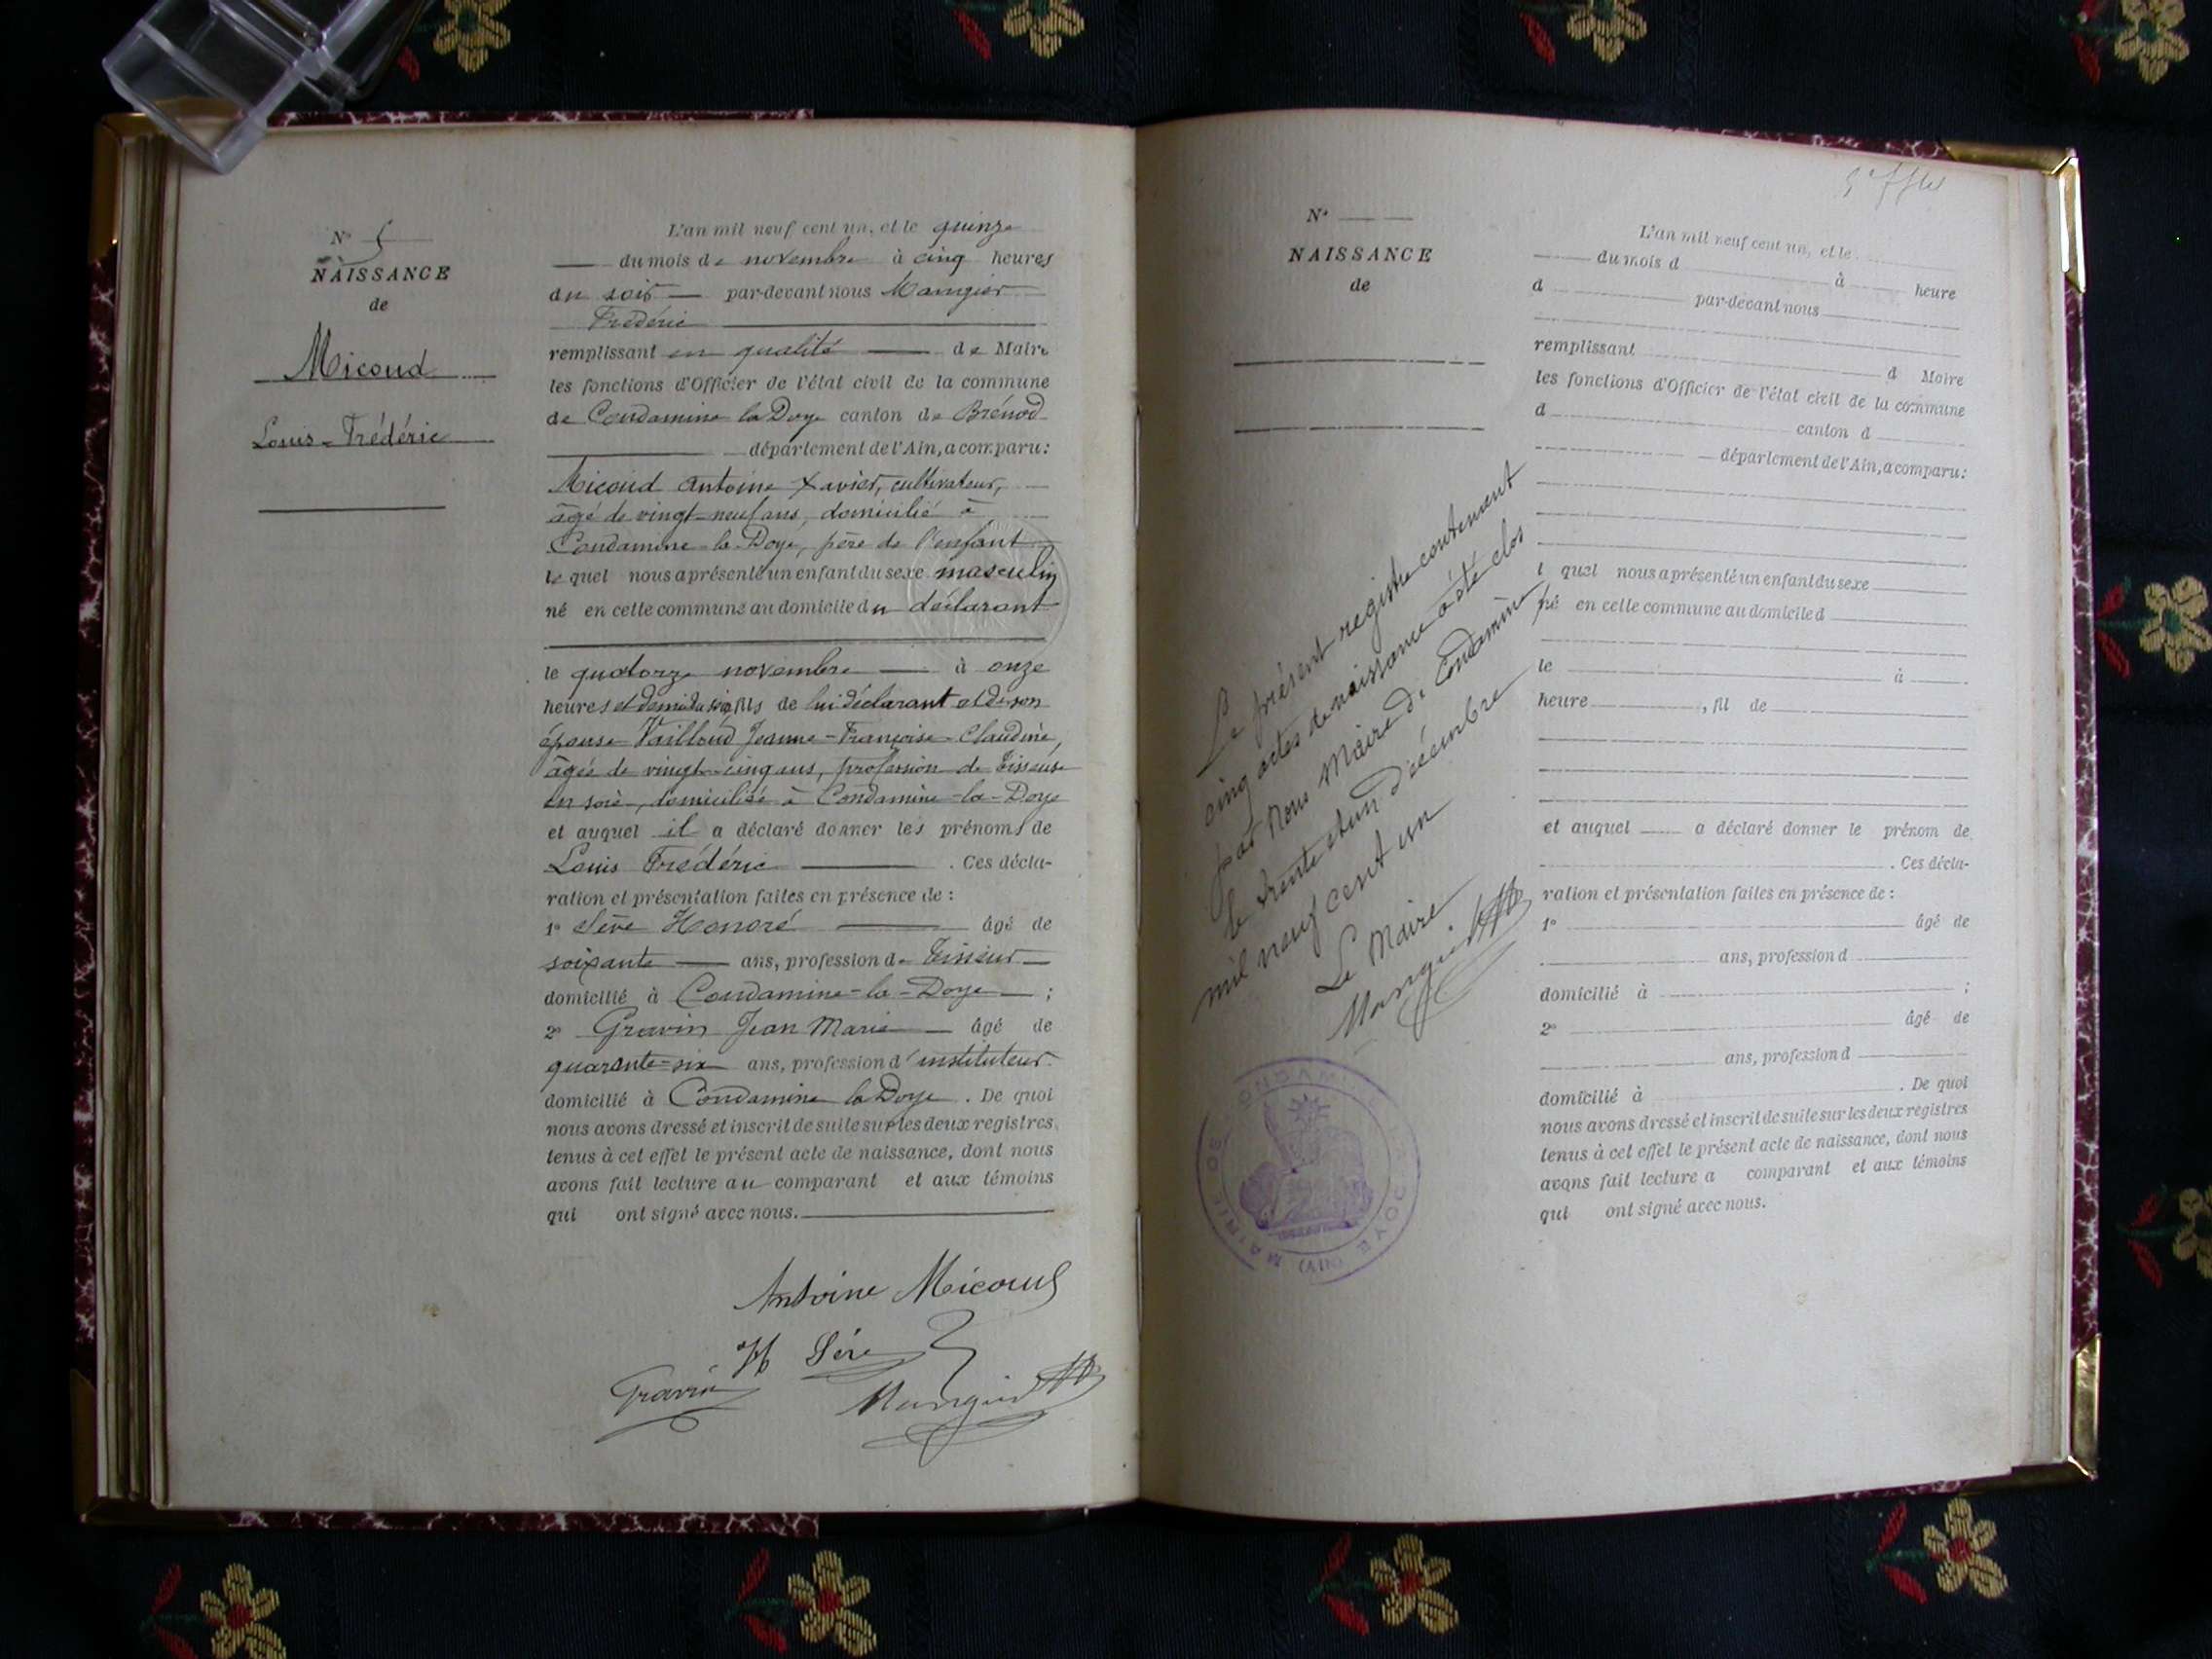 N° 5
NAISSANCE
de
Micoud
Louis-Frédéric
L'an mil neuf cent un, et le quinze
du mois de novembre à cinq heures
du soir par-devant nous Mangier
Frédéric
remplissant en qualité de Maire
les fonctions d'Officier de l'état civil de la commune
de Condamine la Doye canton de Brénod
département de l'Ain, a comparu :
Micoud Antoine Xavier, cultivateur,
âgé de vingt-neuf ans, domicilié à
Condamine-la-Doye, père de l'enfant
lequel nous a présenté un enfant du sexe masculin
né en cette commune au domicile du déclarant
le quatorze novembre à onze
heures et demi du soir fils de lui déclarant et de son
épouse Vailloud Jeanne-Françoise-Claudine,
âgée de vingt-cinq ans, profession de Tisseuse
en soie, domiciliée à Condamine-la-Doye
et auquel il a déclaré donner les prénoms de
Louis Frédéric . Ces décla-
ration et présentation faites en présence de :
1° Sève Honoré âgé de
soixante ans, profession de Tisseur
domicilié à Condamine-la-Doye ;
2° Gravin Jean Marie âgé de
quarante-six ans, profession d'instituteur
domicilié à Condamine la Doye . De quoi
nous avons dressé et inscrit de suite sur les deux registres
tenus à cet effet le présent acte de naissance, dont nous
avons fait lecture au comparant et aux témoins
qui ont signé avec nous.
Antoine Micoud
H Sève
Gravin
Mangier
N°
NAISSANCE
de
Le présent registre contenant
cinq actes de naissance a été clos
par nous Maire de Condamine
le trente et un Décembre
mil neuf cent un
Le Maire
Mangier
MAIRIE DE CONDAMINE LA DOYE (AIN)
L'an mil neuf cent un, et le
du mois d à heure
d par-devant nous
remplissant d Maire
les fonctions d'Officier de l'état civil de la commune
d canton d
département de l'Ain, a comparu :
l quel nous a présenté un enfant du sexe
né en cette commune au domicile d
le à
heure , fil de
et auquel a déclaré donner le prénom de
. Ces décla-
ration et présentation faites en présence de :
1° âgé de
ans, profession d
domicilié à ;
2° âgé de
ans, profession d
domicilié à . De quoi
nous avons dressé et inscrit de suite sur les deux registres
tenus à cet effet le présent acte de naissance, dont nous
avons fait lecture a comparant et aux témoins
qui ont signé avec nous.